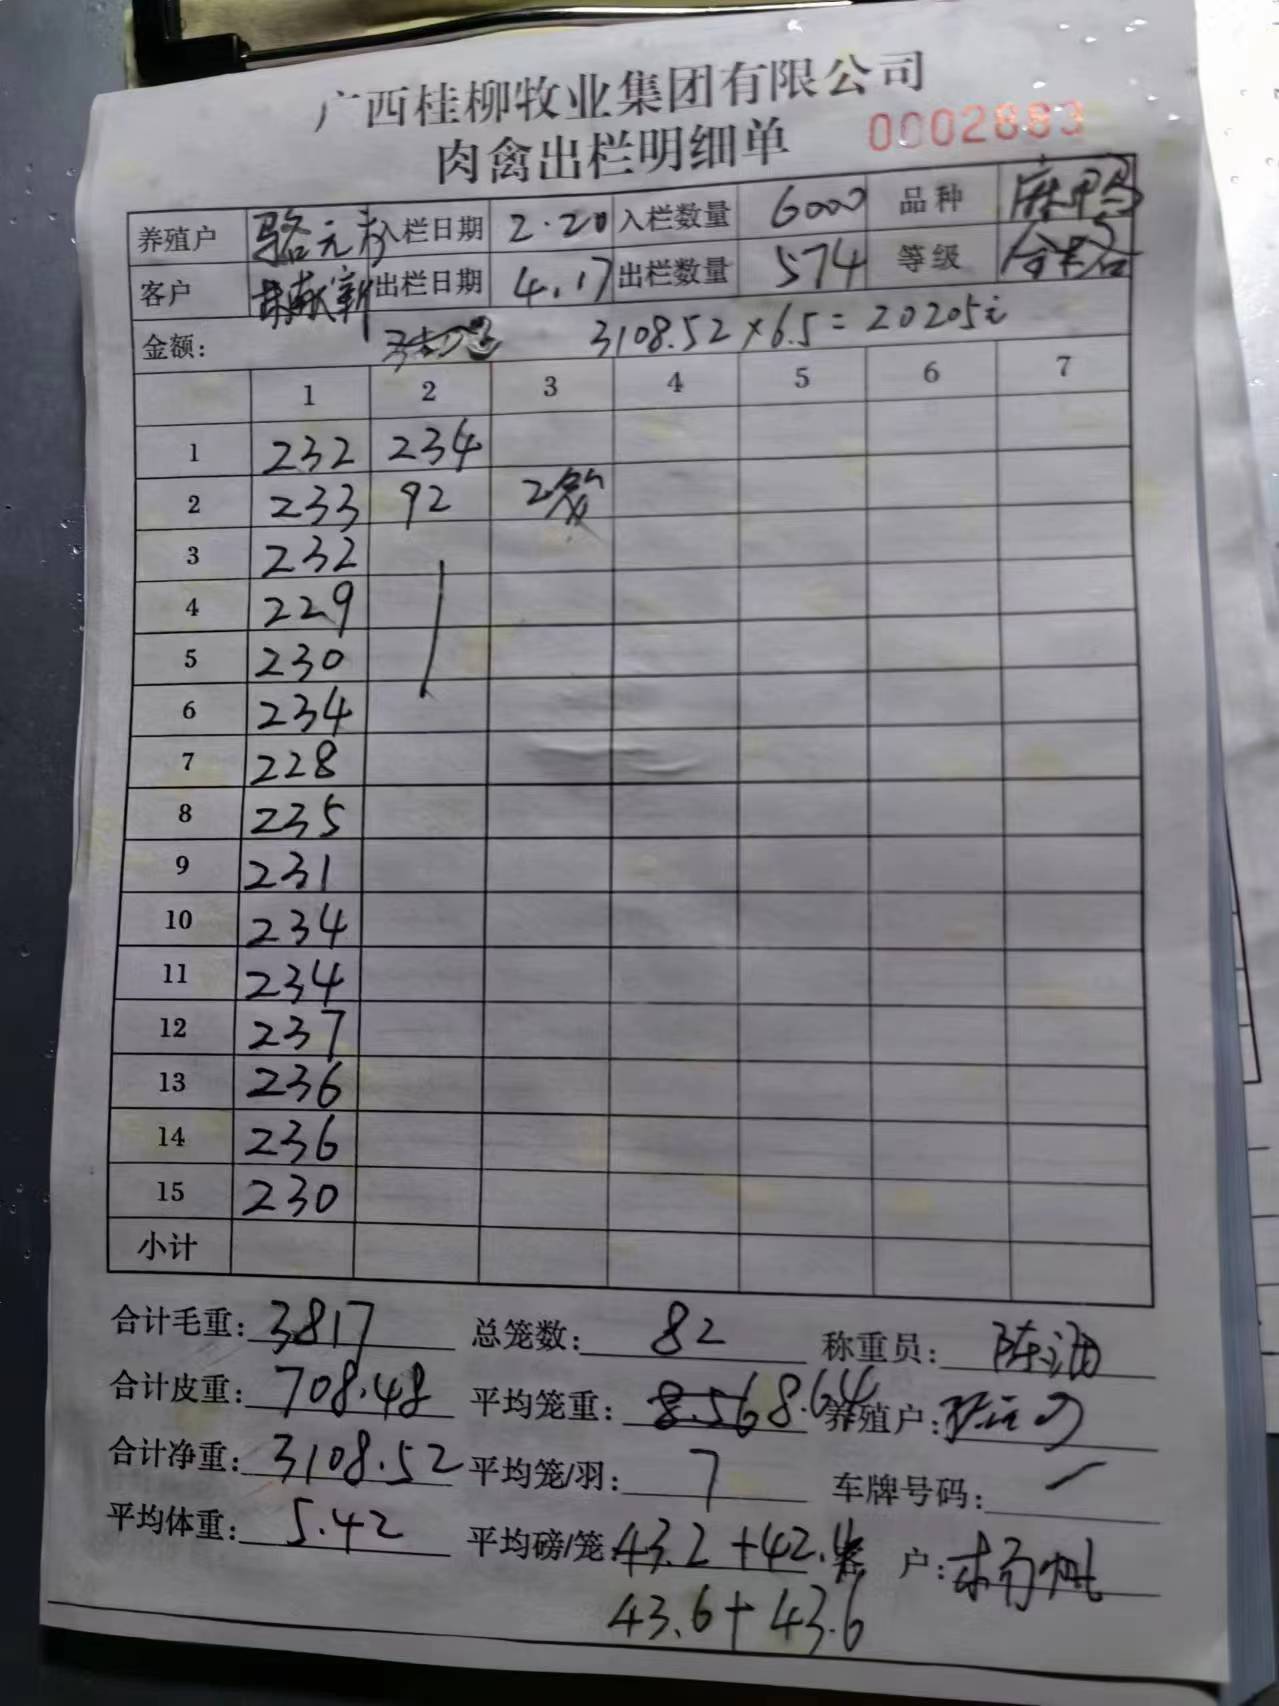 广西桂柳牧业集团有限公司
肉禽出栏明细单 0002883
养殖户 骆元 入栏日期 2.20 入栏数量 6000 品种 麻鸭
客户 献新 出栏日期 4.17 出栏数量 574 等级
金额: 3108.52×6.5=20205
1 2 3 4 5 6 7
1 232 234
2 233 92 2笼
3 232
4 229
5 230
6 234
7 228
8 235
9 231
10 234
11 234
12 237
13 236
14 236
15 230
小计
合计毛重: 3817 总笼数: 82 称重员: 陈
合计皮重: 708.48 平均笼重: 8.64 养殖户:
合计净重: 3108.52 平均笼/羽: 7 车牌号码:
平均体重: 5.42 平均磅/笼 43.2+42.4 户:
43.6+43.6